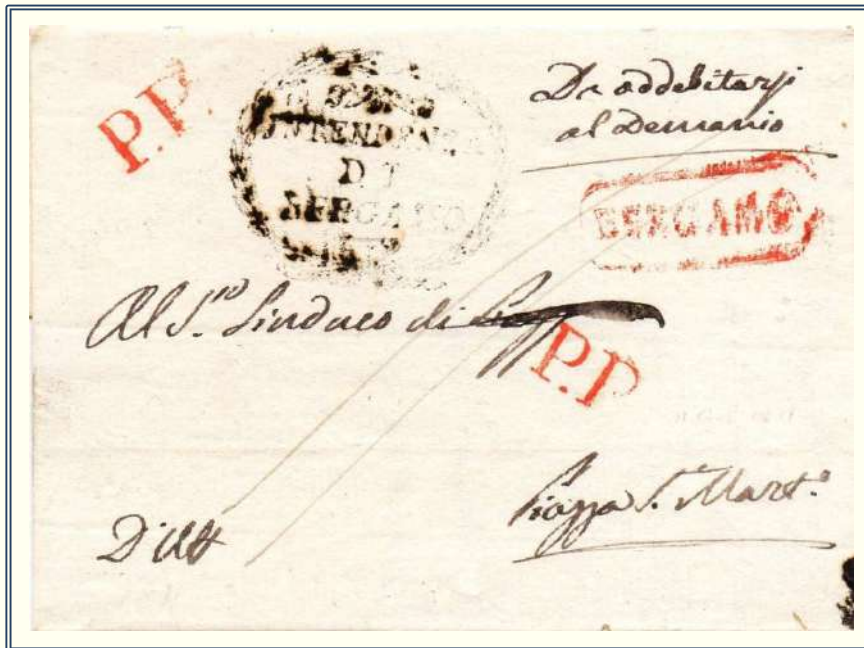 P.P.
INTENDENZA
DI
BERGAMO
Da addebitarsi
al Demanio
BERGAMO
Al S.r Sindaco di
P.P
D'Uff
Piazza S. Mart.o